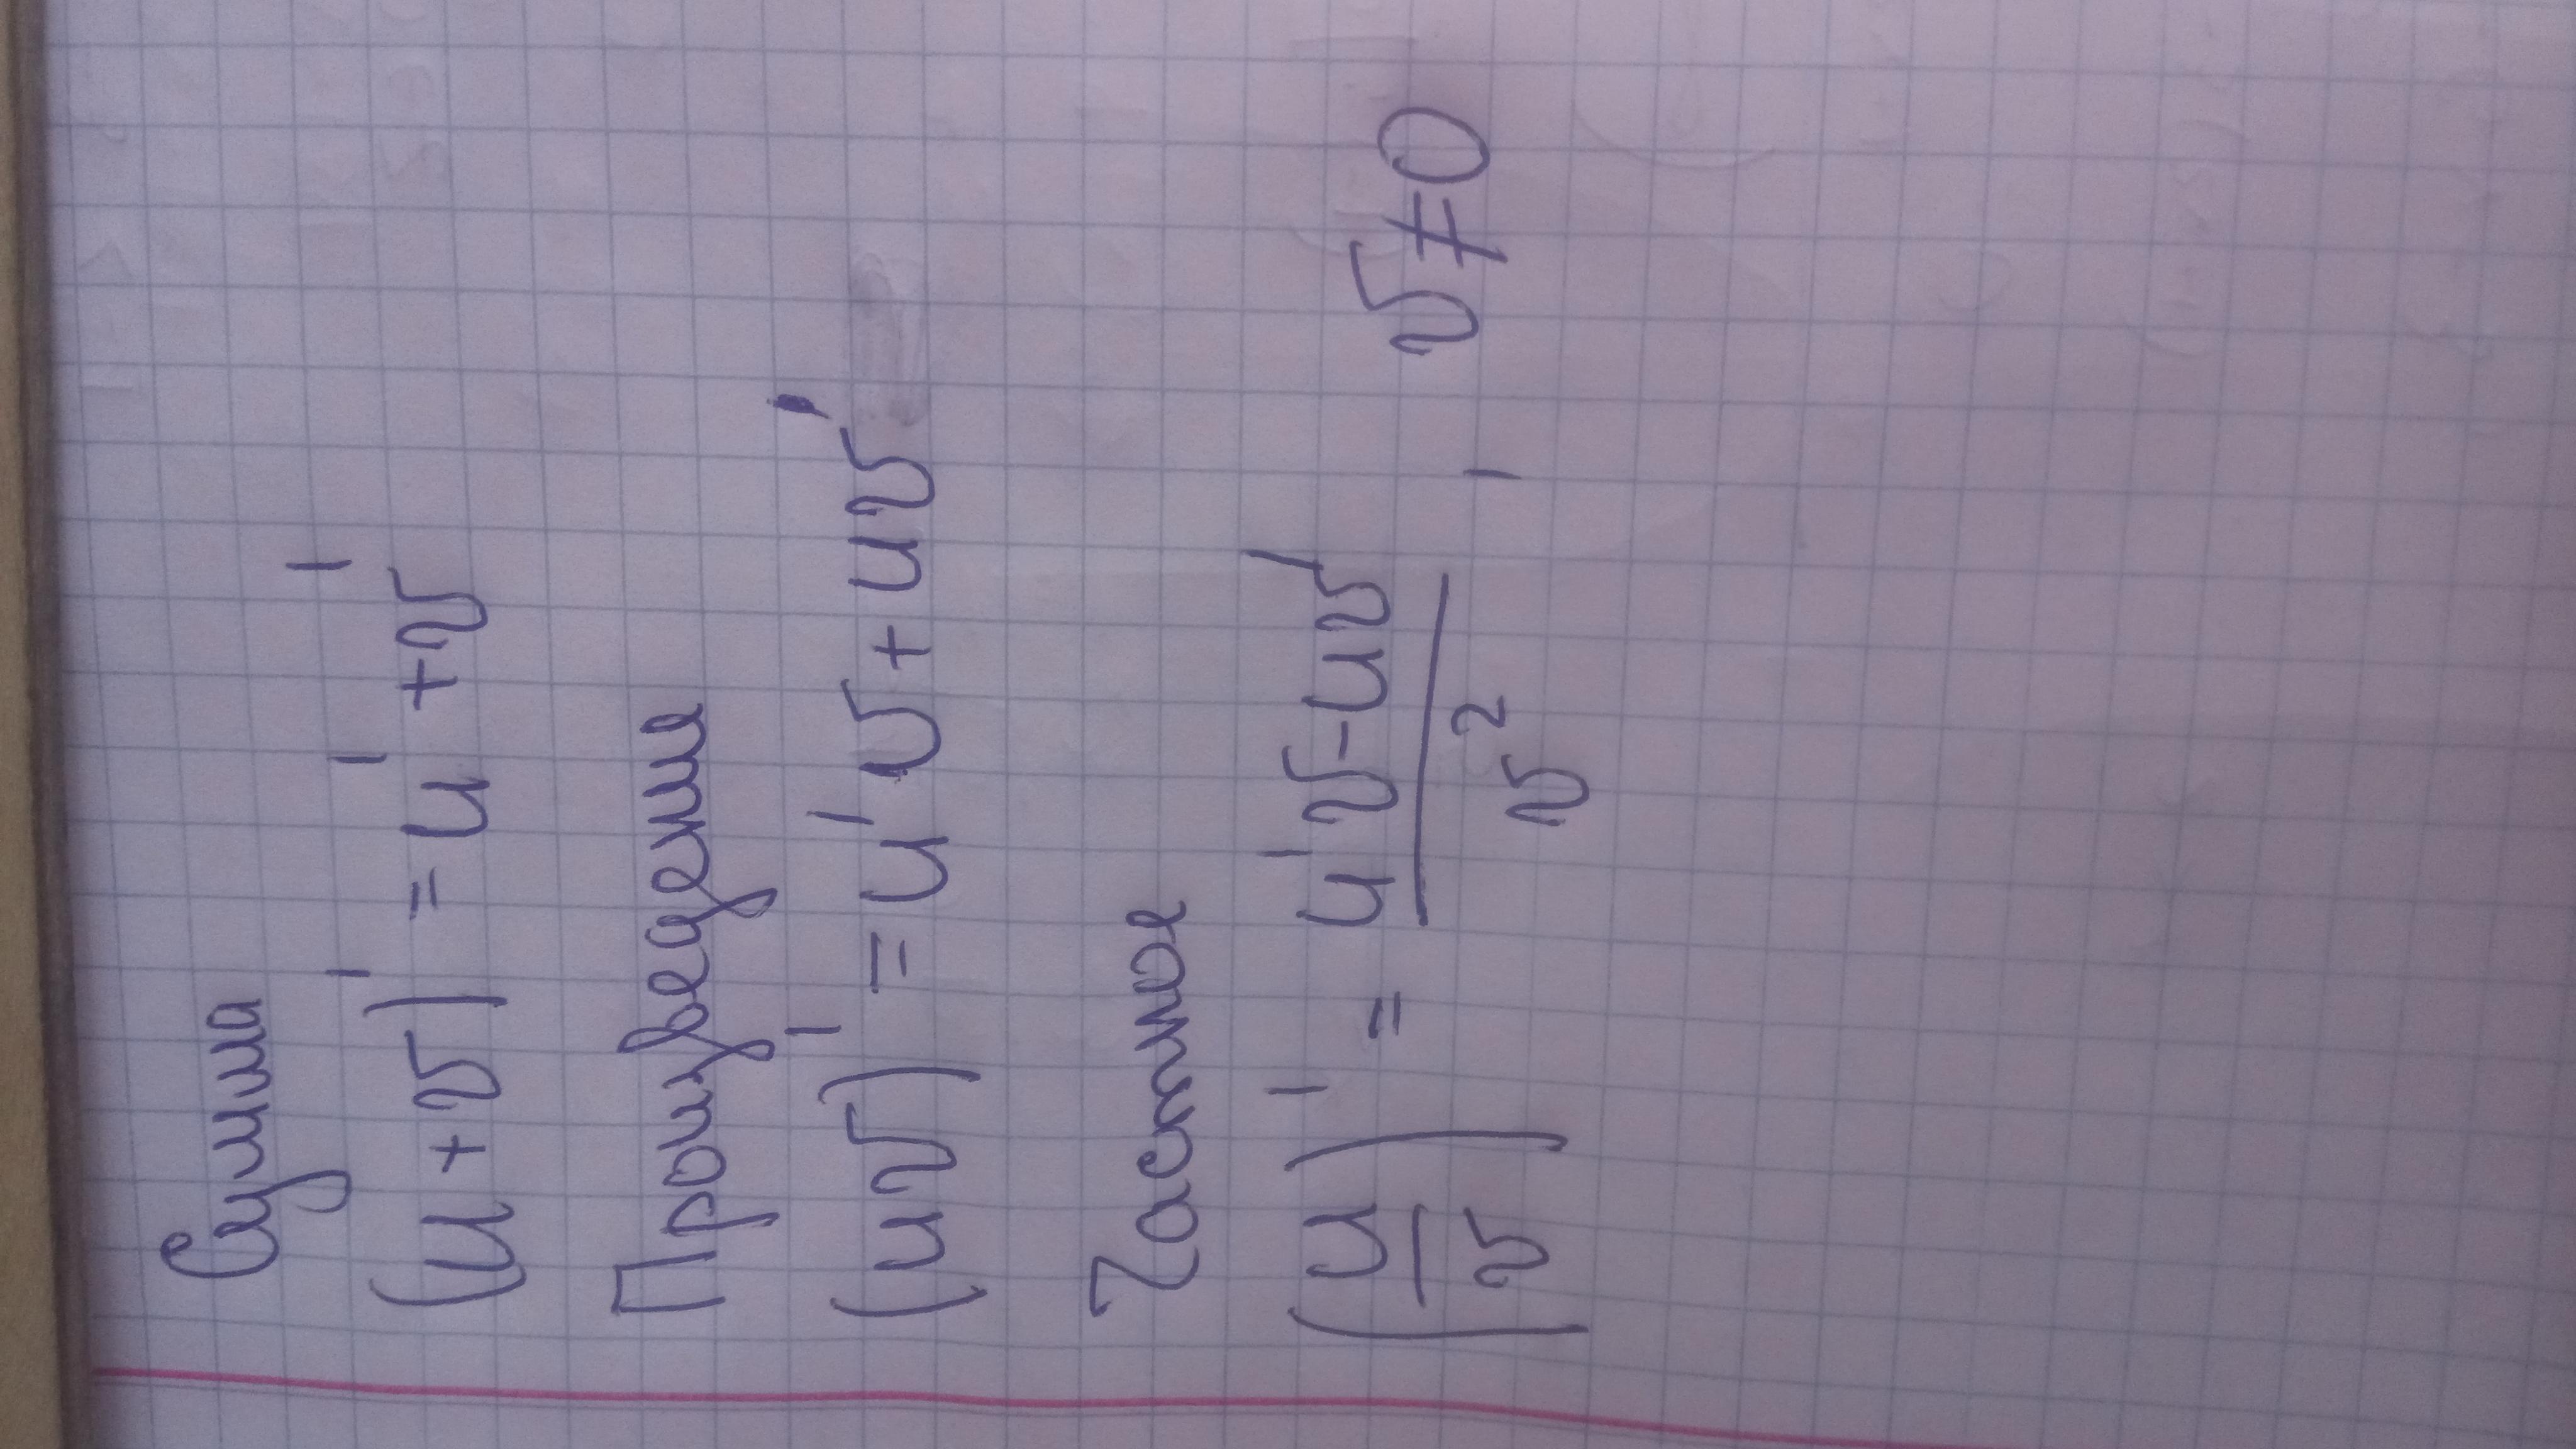 Сумма
(u + v)' = u' + v'
Произведение
(uv)' = u'v + uv'
Частное
(u/v)' = (u'v - uv')/v², v ≠ 0